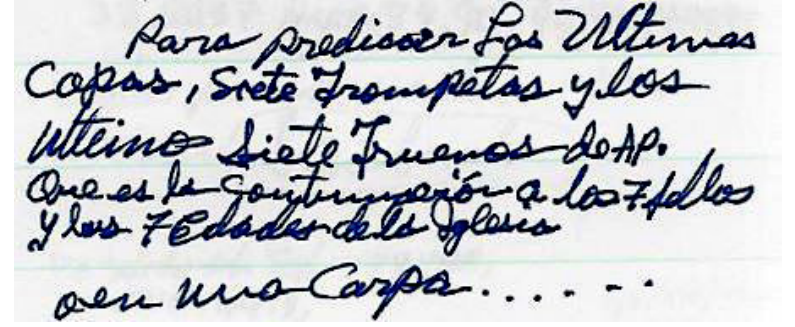 Para predicar Las Ultimas
Copas, Siete Trompetas y los
ultimo Siete Truenos de AP.
Que es la continuación a los 7 sellos
y las 7 Edades de la Iglesia
o en una Carpa......